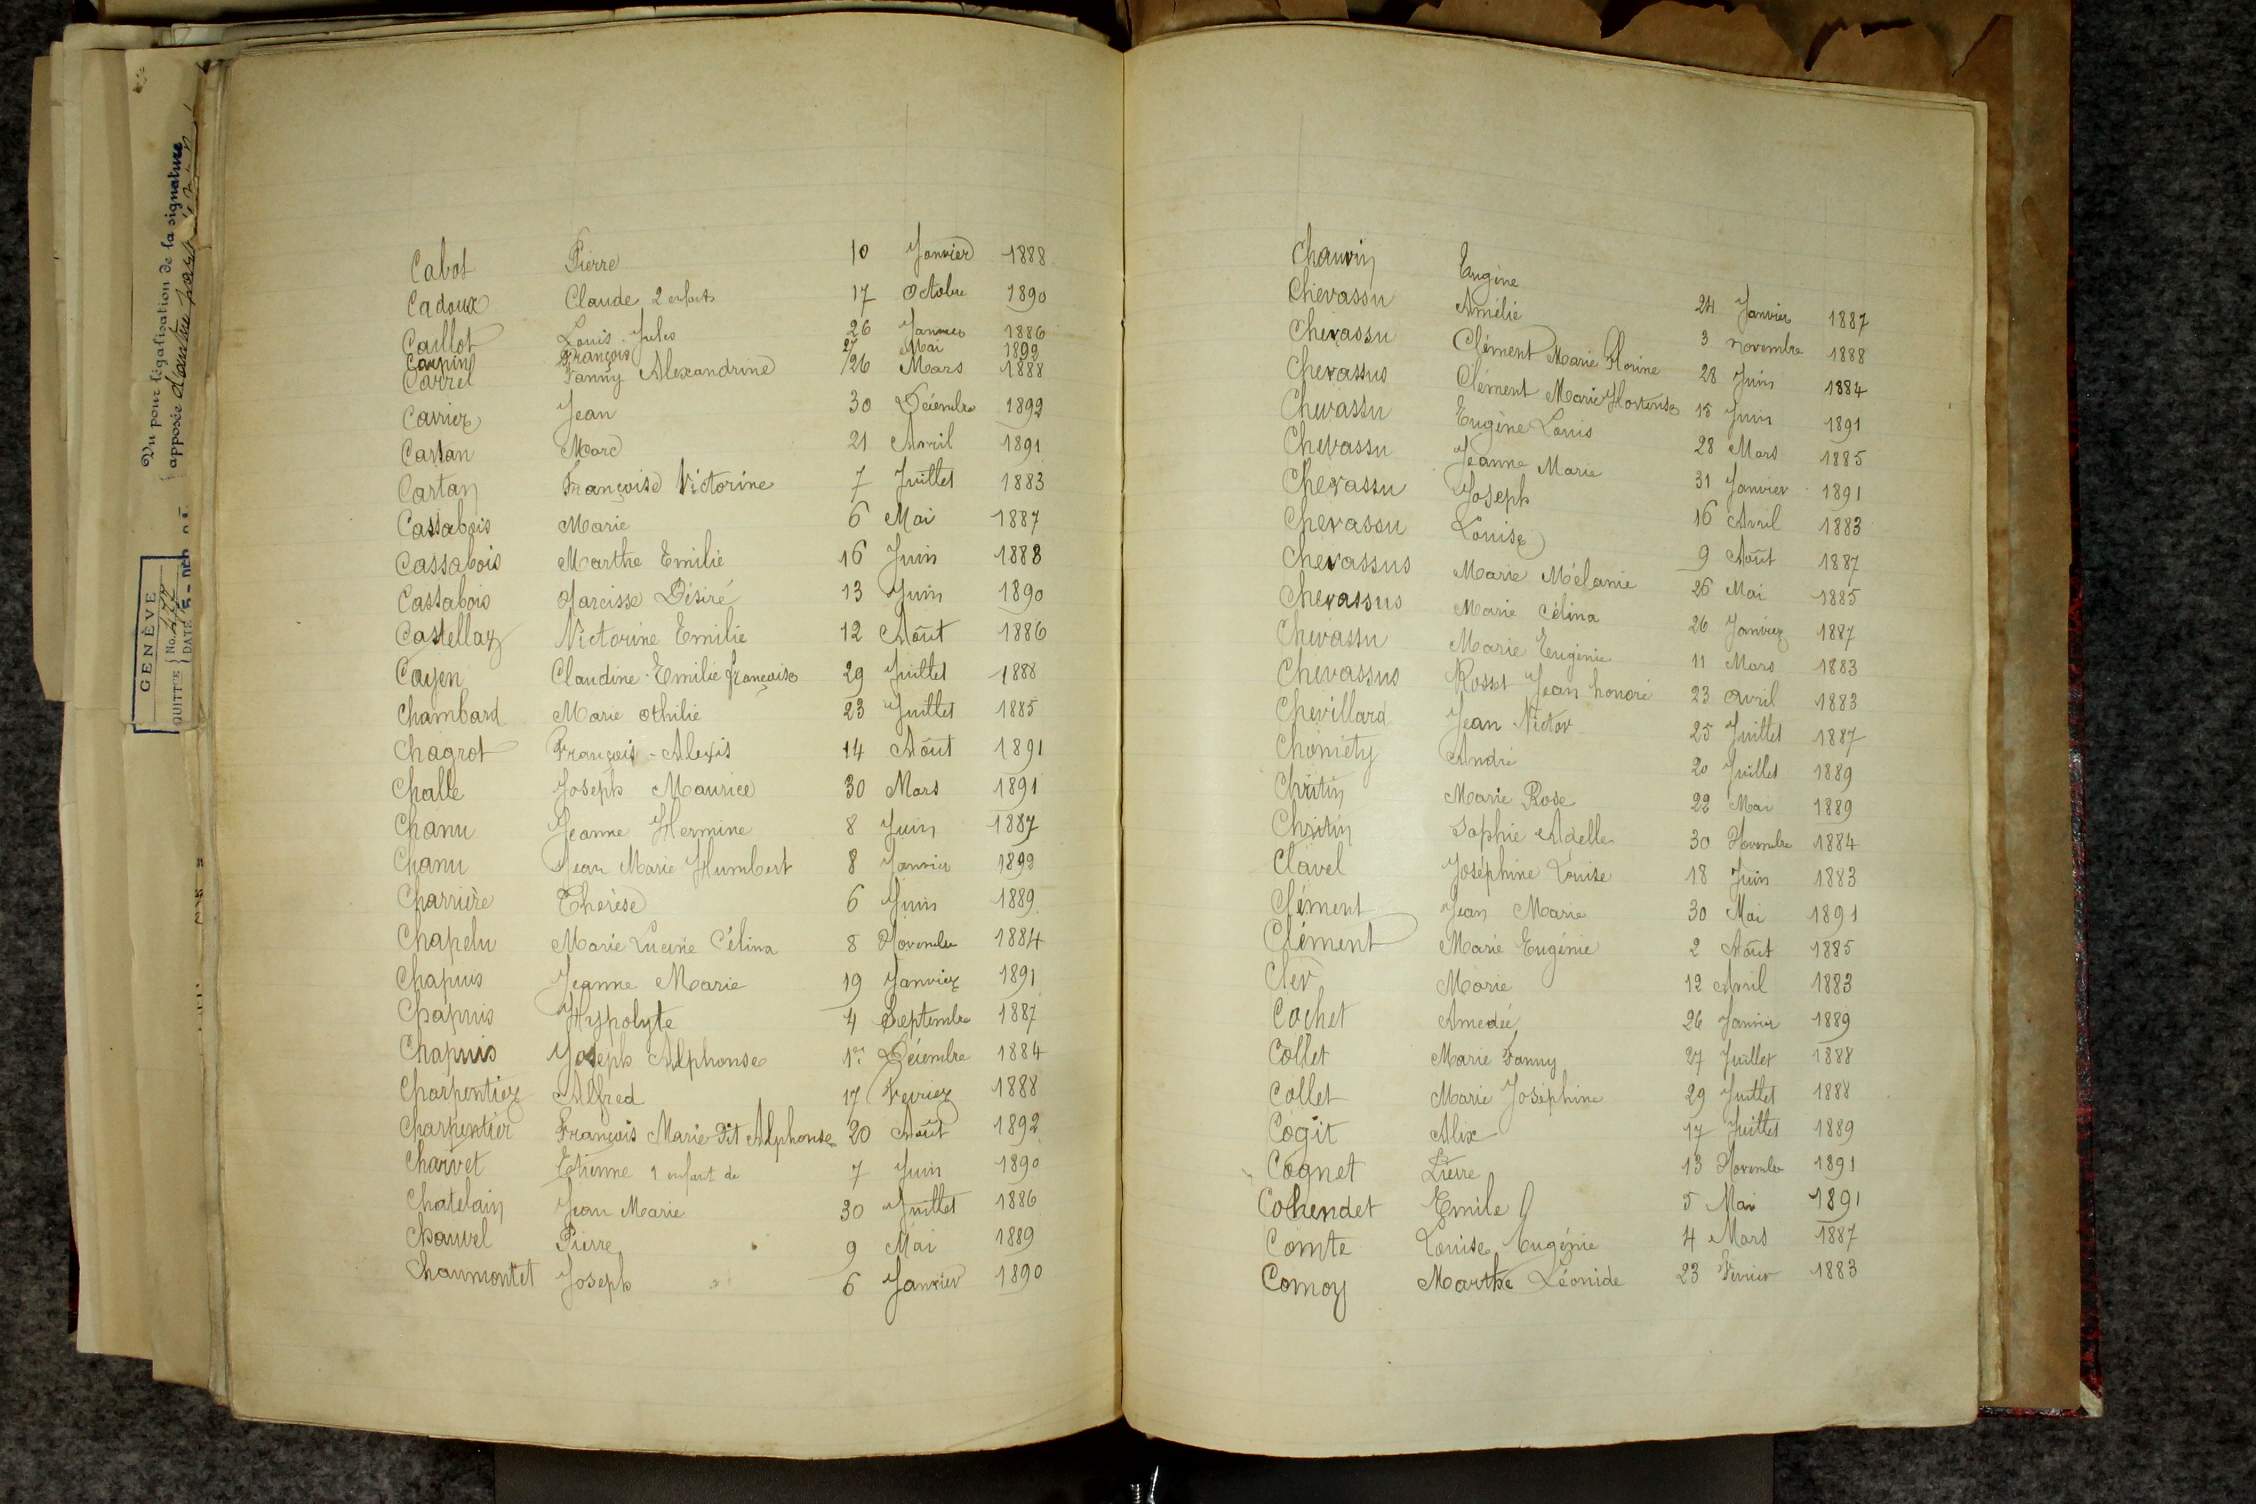 Vu pour légalisation de la signature
apposée d'autre part
GENÈVE
QUITTCE No. 477
DATE 5 - DEC
Cabot Pierre 10 Janvier 1888
Cadoux Claude 2 enfants 17 Octobre 1890
Caillot Louis-Jules 26 Janvier 1886
Carpin François 27 Mai 1892
Carrel Fanny Alexandrine 26 Mars 1888
Carrier Jean 30 Décembre 1892
Cartan Marc 21 Avril 1891
Cartan Françoise Victorine 7 Juillet 1883
Cassabois Marie 6 Mai 1887
Cassabois Marthe Emilie 16 Juin 1888
Cassabois Narcisse Désiré 13 Juin 1890
Castellaz Victorine Emilie 12 Août 1886
Cayen Claudine-Emilie françoise 29 Juillet 1888
Chambard Marie Othilie 23 Juillet 1885
Chagrot François-Alexis 14 Août 1891
Challe Joseph Maurice 30 Mars 1891
Chanu Jeanne Hermine 8 Juin 1887
Chanu Jean Marie Humbert 8 Janvier 1892
Charrière Thérèse 6 Juin 1889
Chapelu Marie Lucine Célina 8 Novembre 1884
Chapuis Jeanne Marie 19 Janvier 1891
Chapuis Hypolyte 4 Septembre 1887
Chapuis Joseph Alphonse 1er Décembre 1884
Charpentier Alfred 17 Fevrier 1888
Charpentier François Marie dit Alphonse 20 Août 1892
Charvet Etienne 1 enfant de 7 Juin 1890
Chatelain Jean Marie 30 Juillet 1886
Chauvel Pierre 9 Mai 1889
Chaumontet Joseph 6 Janvier 1890
Chauvin Eugène
Chevassu Amélie 24 Janvier 1887
Chevassu Clément Marie Florine 3 novembre 1888
Chevassus Clément Marie Hortense 28 Juin 1884
Chevassu Eugène Louis 15 Juin 1891
Chevassu Jeanne Marie 28 Mars 1885
Chevassu Joseph 31 Janvier 1891
Chevassu Louise 16 Avril 1883
Chevassus Marie Mélanie 9 Août 1887
Chevassus Marie Célina 26 Mai 1885
Chevassu Marie Eugénie 26 Janvier 1887
Chevassus Rosset Jean honoré 11 Mars 1883
Chevillard Jean Victor 23 avril 1883
Chométy André 25 Juillet 1887
Chritin Marie Rose 20 Juillet 1889
Chritin Sophie Adelle 22 Mai 1889
Clavel Joséphine Louise 30 Novembre 1884
Clément Jean Marie 18 Juin 1883
Clément Marie Eugénie 30 Mai 1891
Clev Marie 2 Août 1885
Cochet Amedée 12 Avril 1883
Collet Marie Fanny 26 Janvier 1889
Collet Marie Joséphine 27 Juillet 1888
Cogit Alix 29 Juillet 1888
Cognet Pierre 17 Juillet 1889
Cohendet Emile 13 Novembre 1891
Comte Louise Eugénie 5 Mai 1891
Comoy Marthe Léonide 4 Mars 1887
23 Fevrier 1883